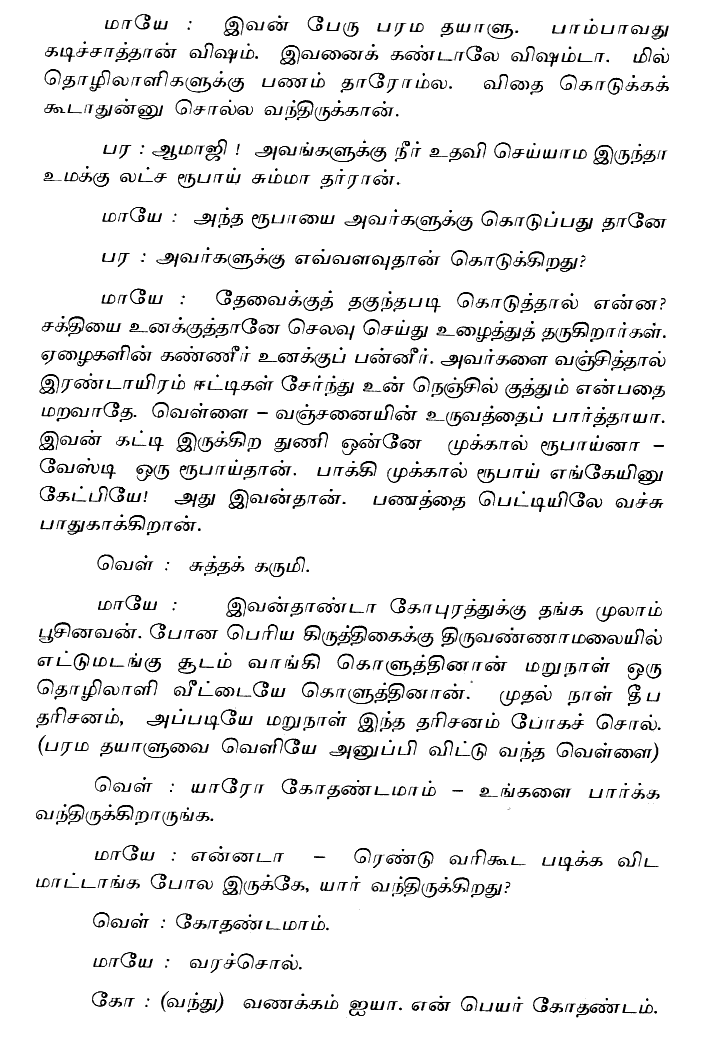 மாயே : இவன் பேரு பரம தயாளு. பாம்பாவது
கடிச்சாத்தான் விஷம். இவனைக் கண்டாலே விஷம்டா. மில்
தொழிலாளிகளுக்கு பணம் தாரோம்ல. விதை கொடுக்கக்
கூடாதுன்னு சொல்ல வந்திருக்கான்.
பர : ஆமாஜி ! அவங்களுக்கு நீர் உதவி செய்யாம இருந்தா
உமக்கு லட்ச ரூபாய் சும்மா தர்ரான்.
மாயே : அந்த ரூபாயை அவர்களுக்கு கொடுப்பது தானே
பர : அவர்களுக்கு எவ்வளவுதான் கொடுக்கிறது?
மாயே : தேவைக்குத் தகுந்தபடி கொடுத்தால் என்ன?
சக்தியை உனக்குத்தானே செலவு செய்து உழைத்துத் தருகிறார்கள்.
ஏழைகளின் கண்ணீர் உனக்குப் பன்னீர். அவர்களை வஞ்சித்தால்
இரண்டாயிரம் ஈட்டிகள் சேர்ந்து உன் நெஞ்சில் குத்தும் என்பதை
மறவாதே. வெள்ளை – வஞ்சனையின் உருவத்தைப் பார்த்தாயா.
இவன் கட்டி இருக்கிற துணி ஒன்னே முக்கால் ரூபாய்னா –
வேஸ்டி ஒரு ரூபாய்தான். பாக்கி முக்கால் ரூபாய் எங்கேயினு
கேட்பியே! அது இவன்தான். பணத்தை பெட்டியிலே வச்சு
பாதுகாக்கிறான்.
வெள் : சுத்தக் கருமி.
மாயே : இவன்தாண்டா கோபுரத்துக்கு தங்க முலாம்
பூசினவன். போன பெரிய கிருத்திகைக்கு திருவண்ணாமலையில்
எட்டுமடங்கு சூடம் வாங்கி கொளுத்தினான் மறுநாள் ஒரு
தொழிலாளி வீட்டையே கொளுத்தினான். முதல் நாள் தீப
தரிசனம், அப்படியே மறுநாள் இந்த தரிசனம் போகச் சொல்.
(பரம தயாளுவை வெளியே அனுப்பி விட்டு வந்த வெள்ளை)
வெள் : யாரோ கோதண்டமாம் – உங்களை பார்க்க
வந்திருக்கிறாருங்க.
மாயே : என்னடா – ரெண்டு வரிகூட படிக்க விட
மாட்டாங்க போல இருக்கே, யார் வந்திருக்கிறது?
வெள் : கோதண்டமாம்.
மாயே : வரச்சொல்.
கோ : (வந்து) வணக்கம் ஐயா. என் பெயர் கோதண்டம்.